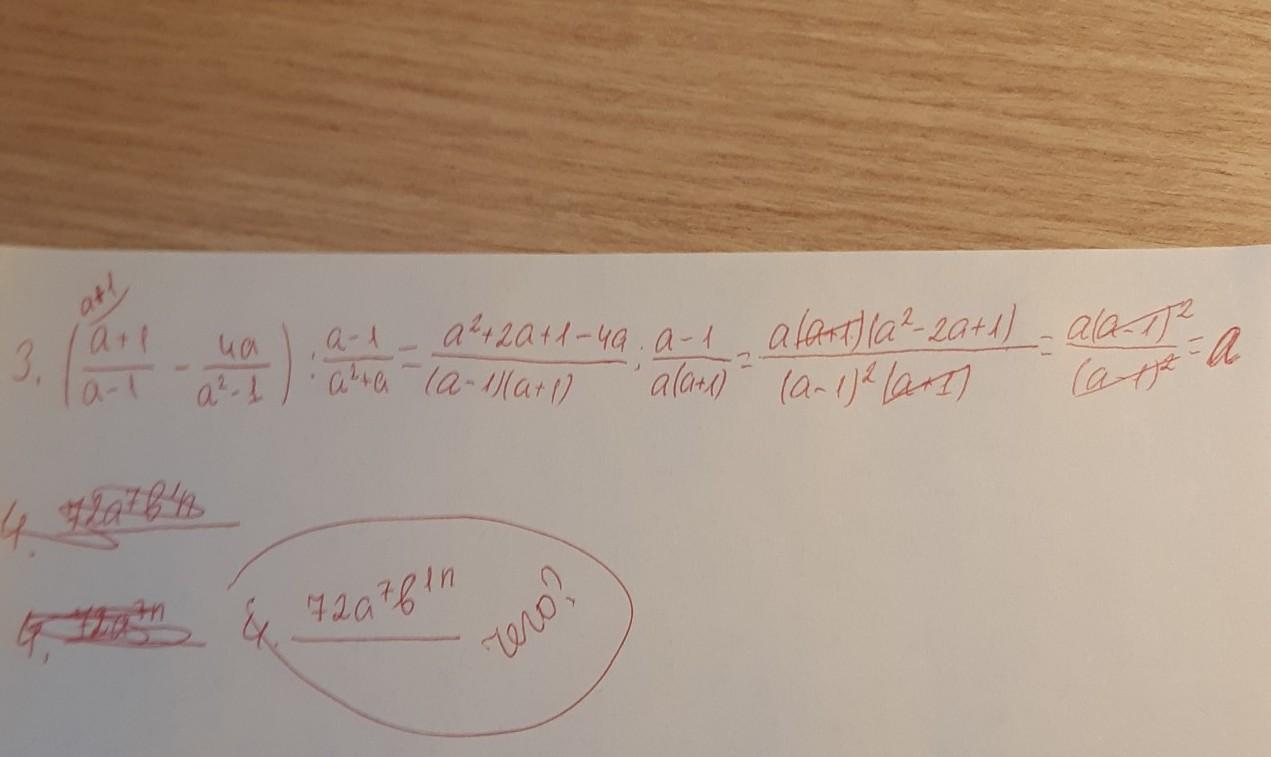 a+1
3. ((a+1)/(a-1) - 4a/(a²-1)) : (a-1)/(a²+a) = (a²+2a+1-4a)/((a-1)(a+1)) : (a-1)/(a(a+1)) = (a(a+1)(a²-2a+1))/((a-1)²(a+1)) = (a(a-1)²)/((a-1)²) = a
4. 72a⁷b
4. 72a⁷ⁿ
4. 72a⁷b¹ⁿ чего?